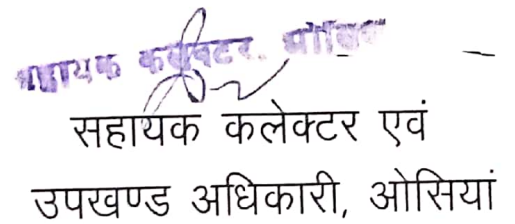 सहायक कलेक्टर, ओसियां
सहायक कलेक्टर एवं
उपखण्ड अधिकारी, ओसियां